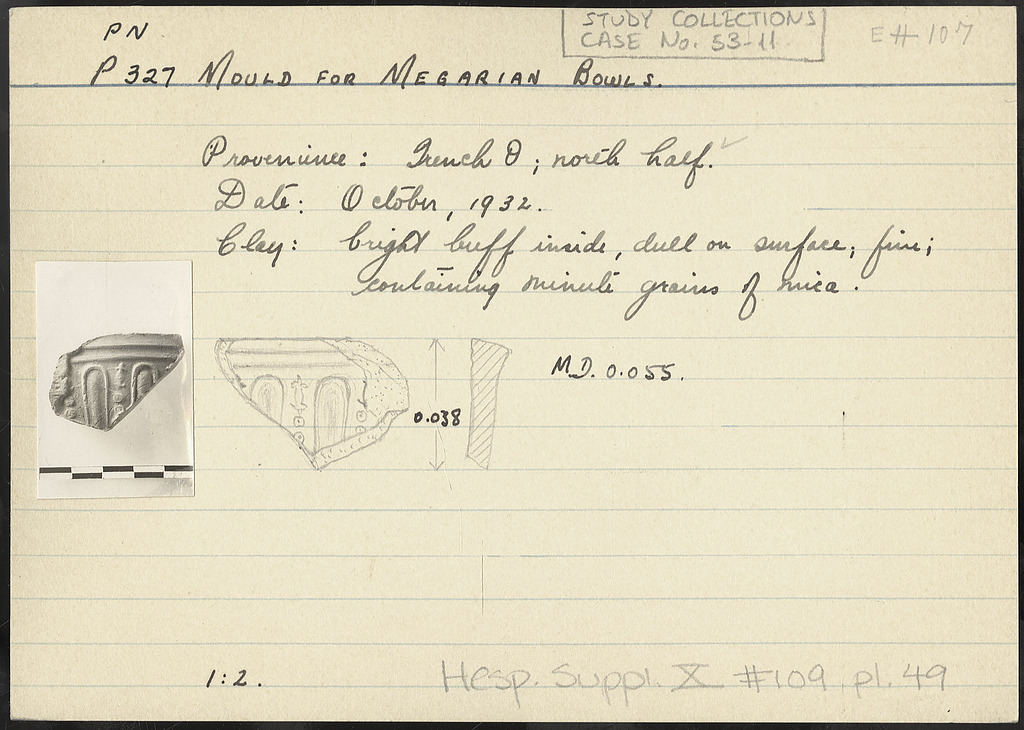 PN
STUDY COLLECTIONS
CASE No. 53-11
E# 107
P 327 MOULD FOR MEGARIAN BOWLS.
Provenience: Trench O; north half. ✓
Date: October, 1932.
Clay: bright buff inside, dull on surface; fine;
containing minute grains of mica.
M.D. 0.055.
0.038
1:2.
Hesp. Suppl. X #109, pl. 49